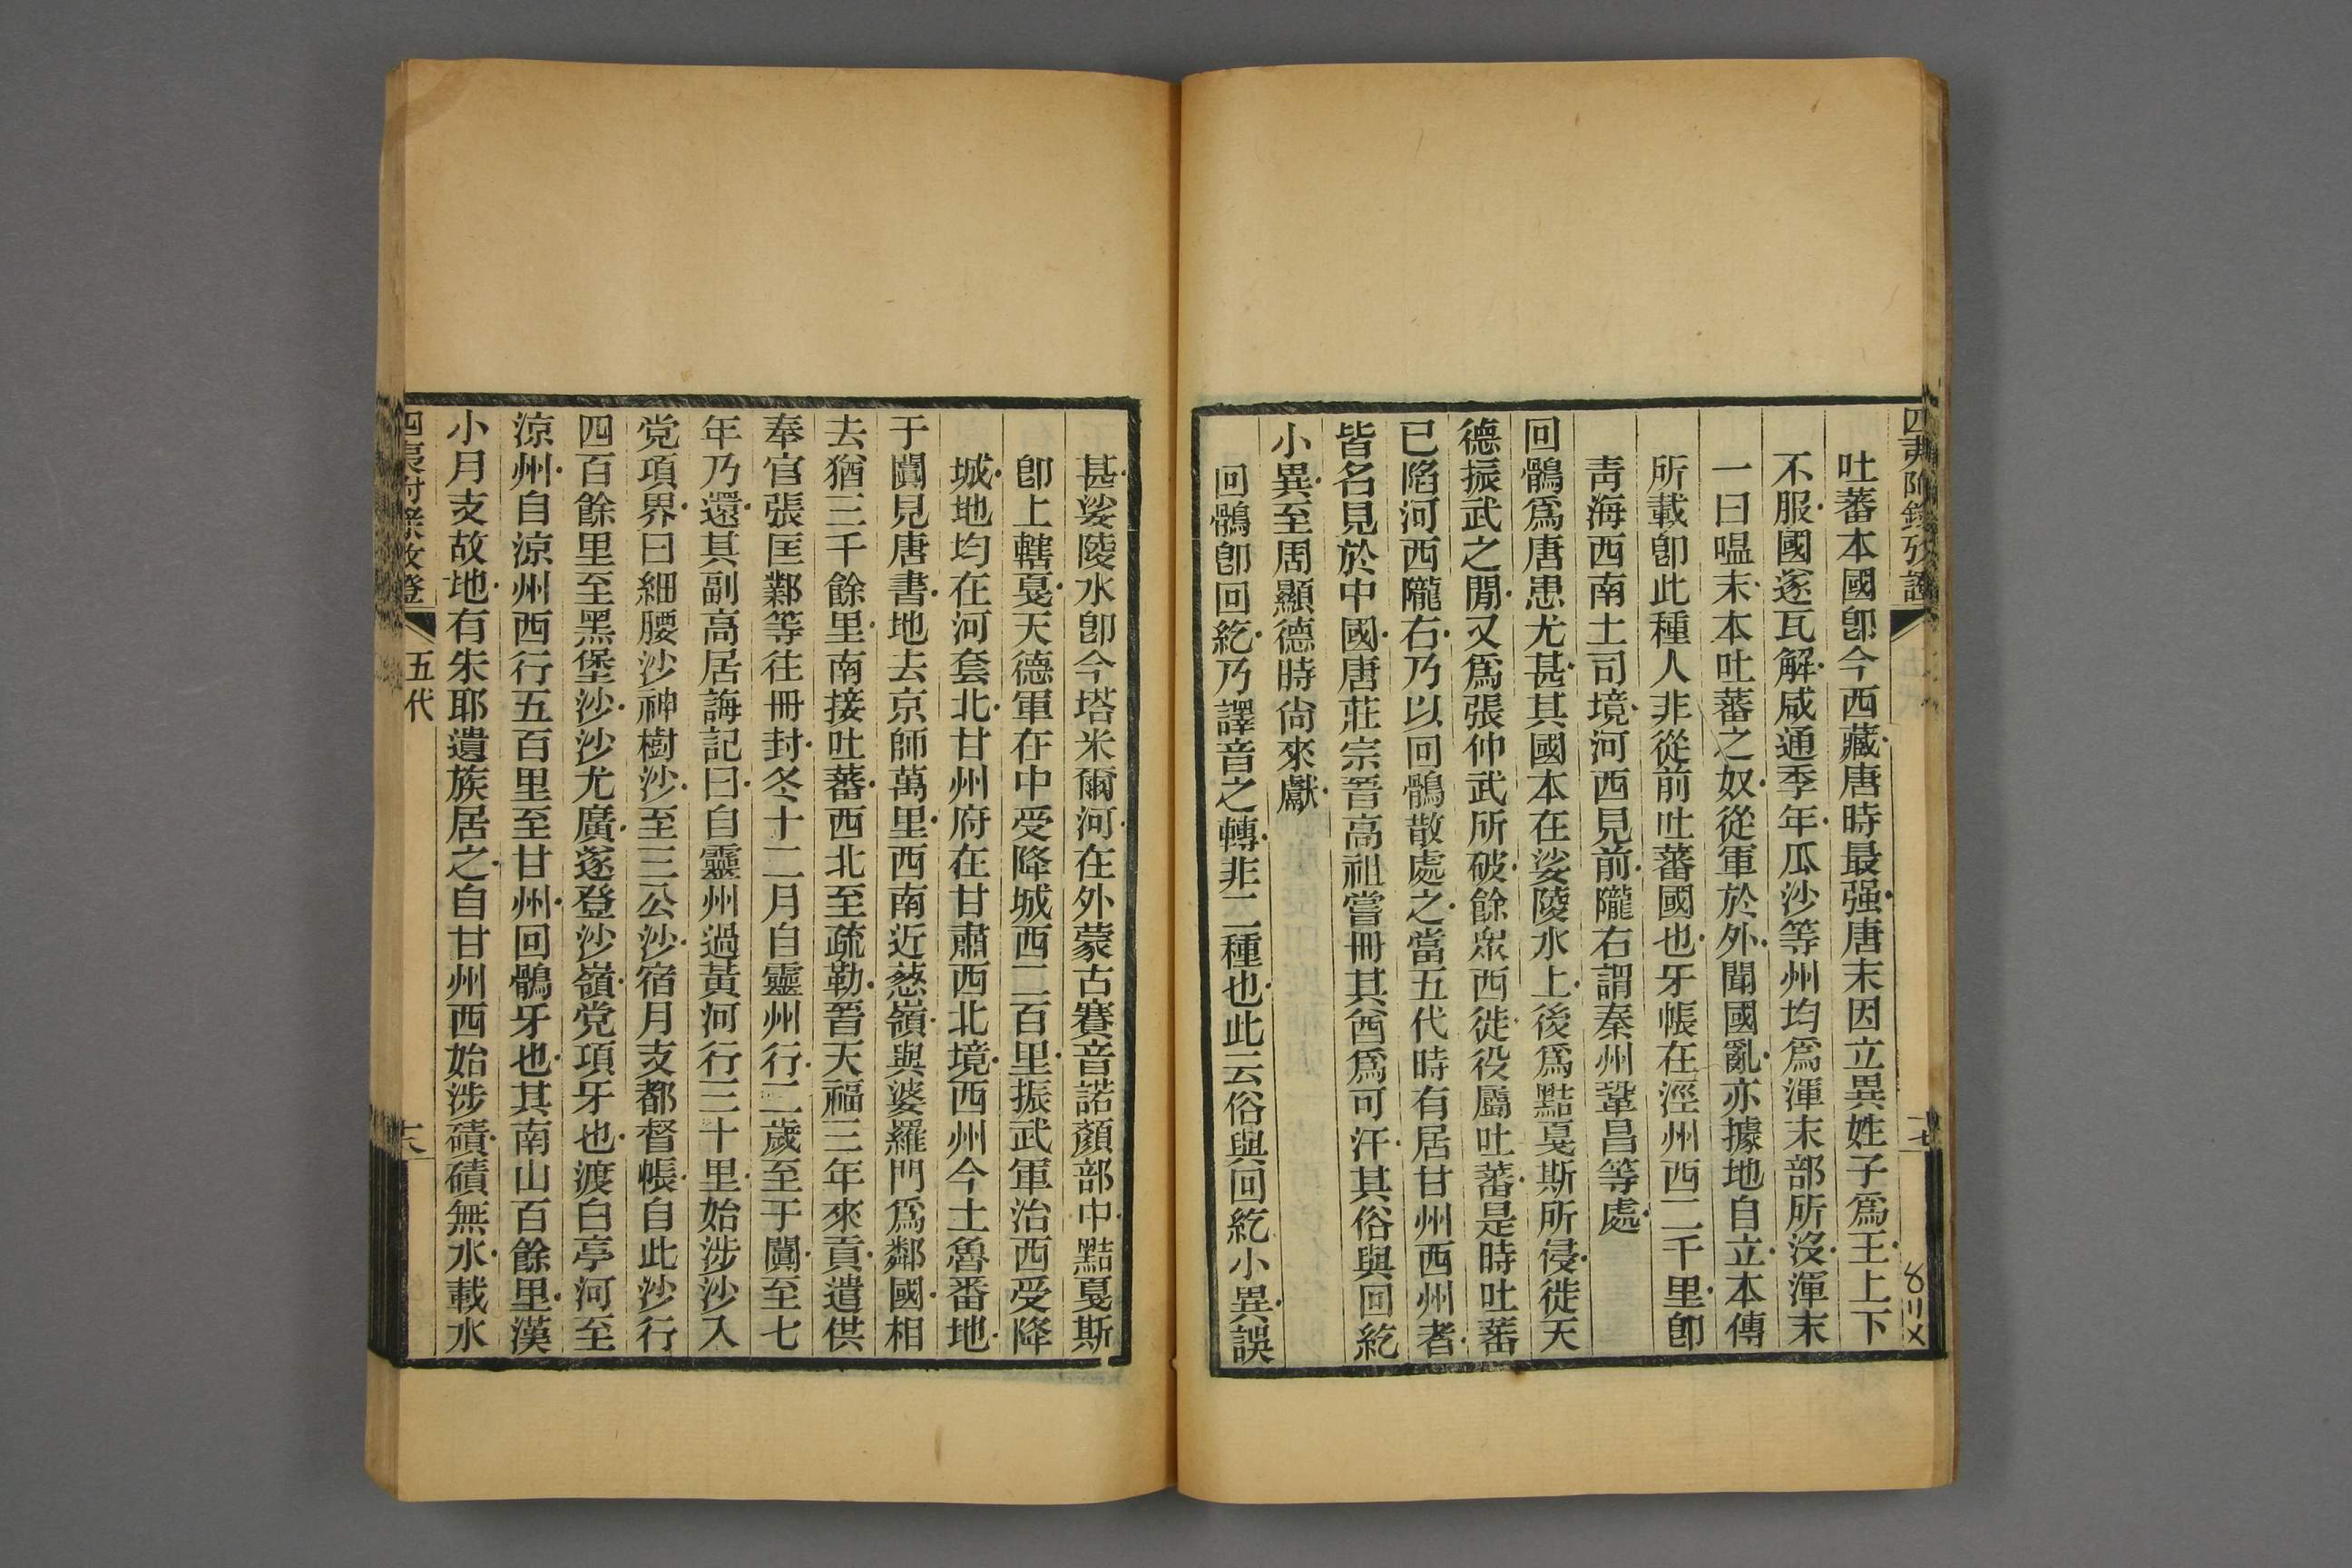 四夷附錄攷證
十七
吐蕃本國卽今西藏唐時最强唐末因立異姓子爲王上下
不服國遂瓦解咸通季年瓜沙等州均爲渾末部所沒渾末
一曰嗢末本吐蕃之奴從軍於外聞國亂亦據地自立本傳
所載卽此種人非從前吐蕃國也牙帳在涇州西二千里卽
靑海西南土司境河西見前隴右謂秦州鞏昌等處
回鶻爲唐患尤甚其國本在娑陵水上後爲黠戛斯所侵徙天
德振武之閒又爲張仲武所破餘眾西徙役屬吐蕃是時吐蕃
已陷河西隴右乃以回鶻散處之當五代時有居甘州西州者
皆名見於中國唐莊宗晉高祖嘗冊其酋爲可汗其俗與回紇
小異至周顯德時尙來獻
回鶻卽回紇乃譯音之轉非二種也此云俗與回紇小異誤
甚娑陵水卽今塔米爾河在外蒙古賽音諾顏部中黠戛斯
卽上轄戛天德軍在中受降城西二百里振武軍治西受降
城地均在河套北甘州府在甘肅西北境西州今土魯番地
于闐見唐書地去京師萬里西南近葱嶺與婆羅門爲鄰國相
去猶三千餘里南接吐蕃西北至疏勒晉天福三年來貢遣供
奉官張匡鄴等往冊封冬十二月自靈州行二歲至于闐至七
年乃還其副高居誨記曰自靈州過黃河行三十里始涉沙入
党項界曰細腰沙神樹沙至三公沙宿月支都督帳自此沙行
四百餘里至黑堡沙沙尤廣遂登沙嶺党項牙也渡白亭河至
涼州自涼州西行五百里至甘州回鶻牙也其南山百餘里漢
小月支故地有朱耶遺族居之自甘州西始涉磧磧無水載水
四夷附錄攷證
五代
十八